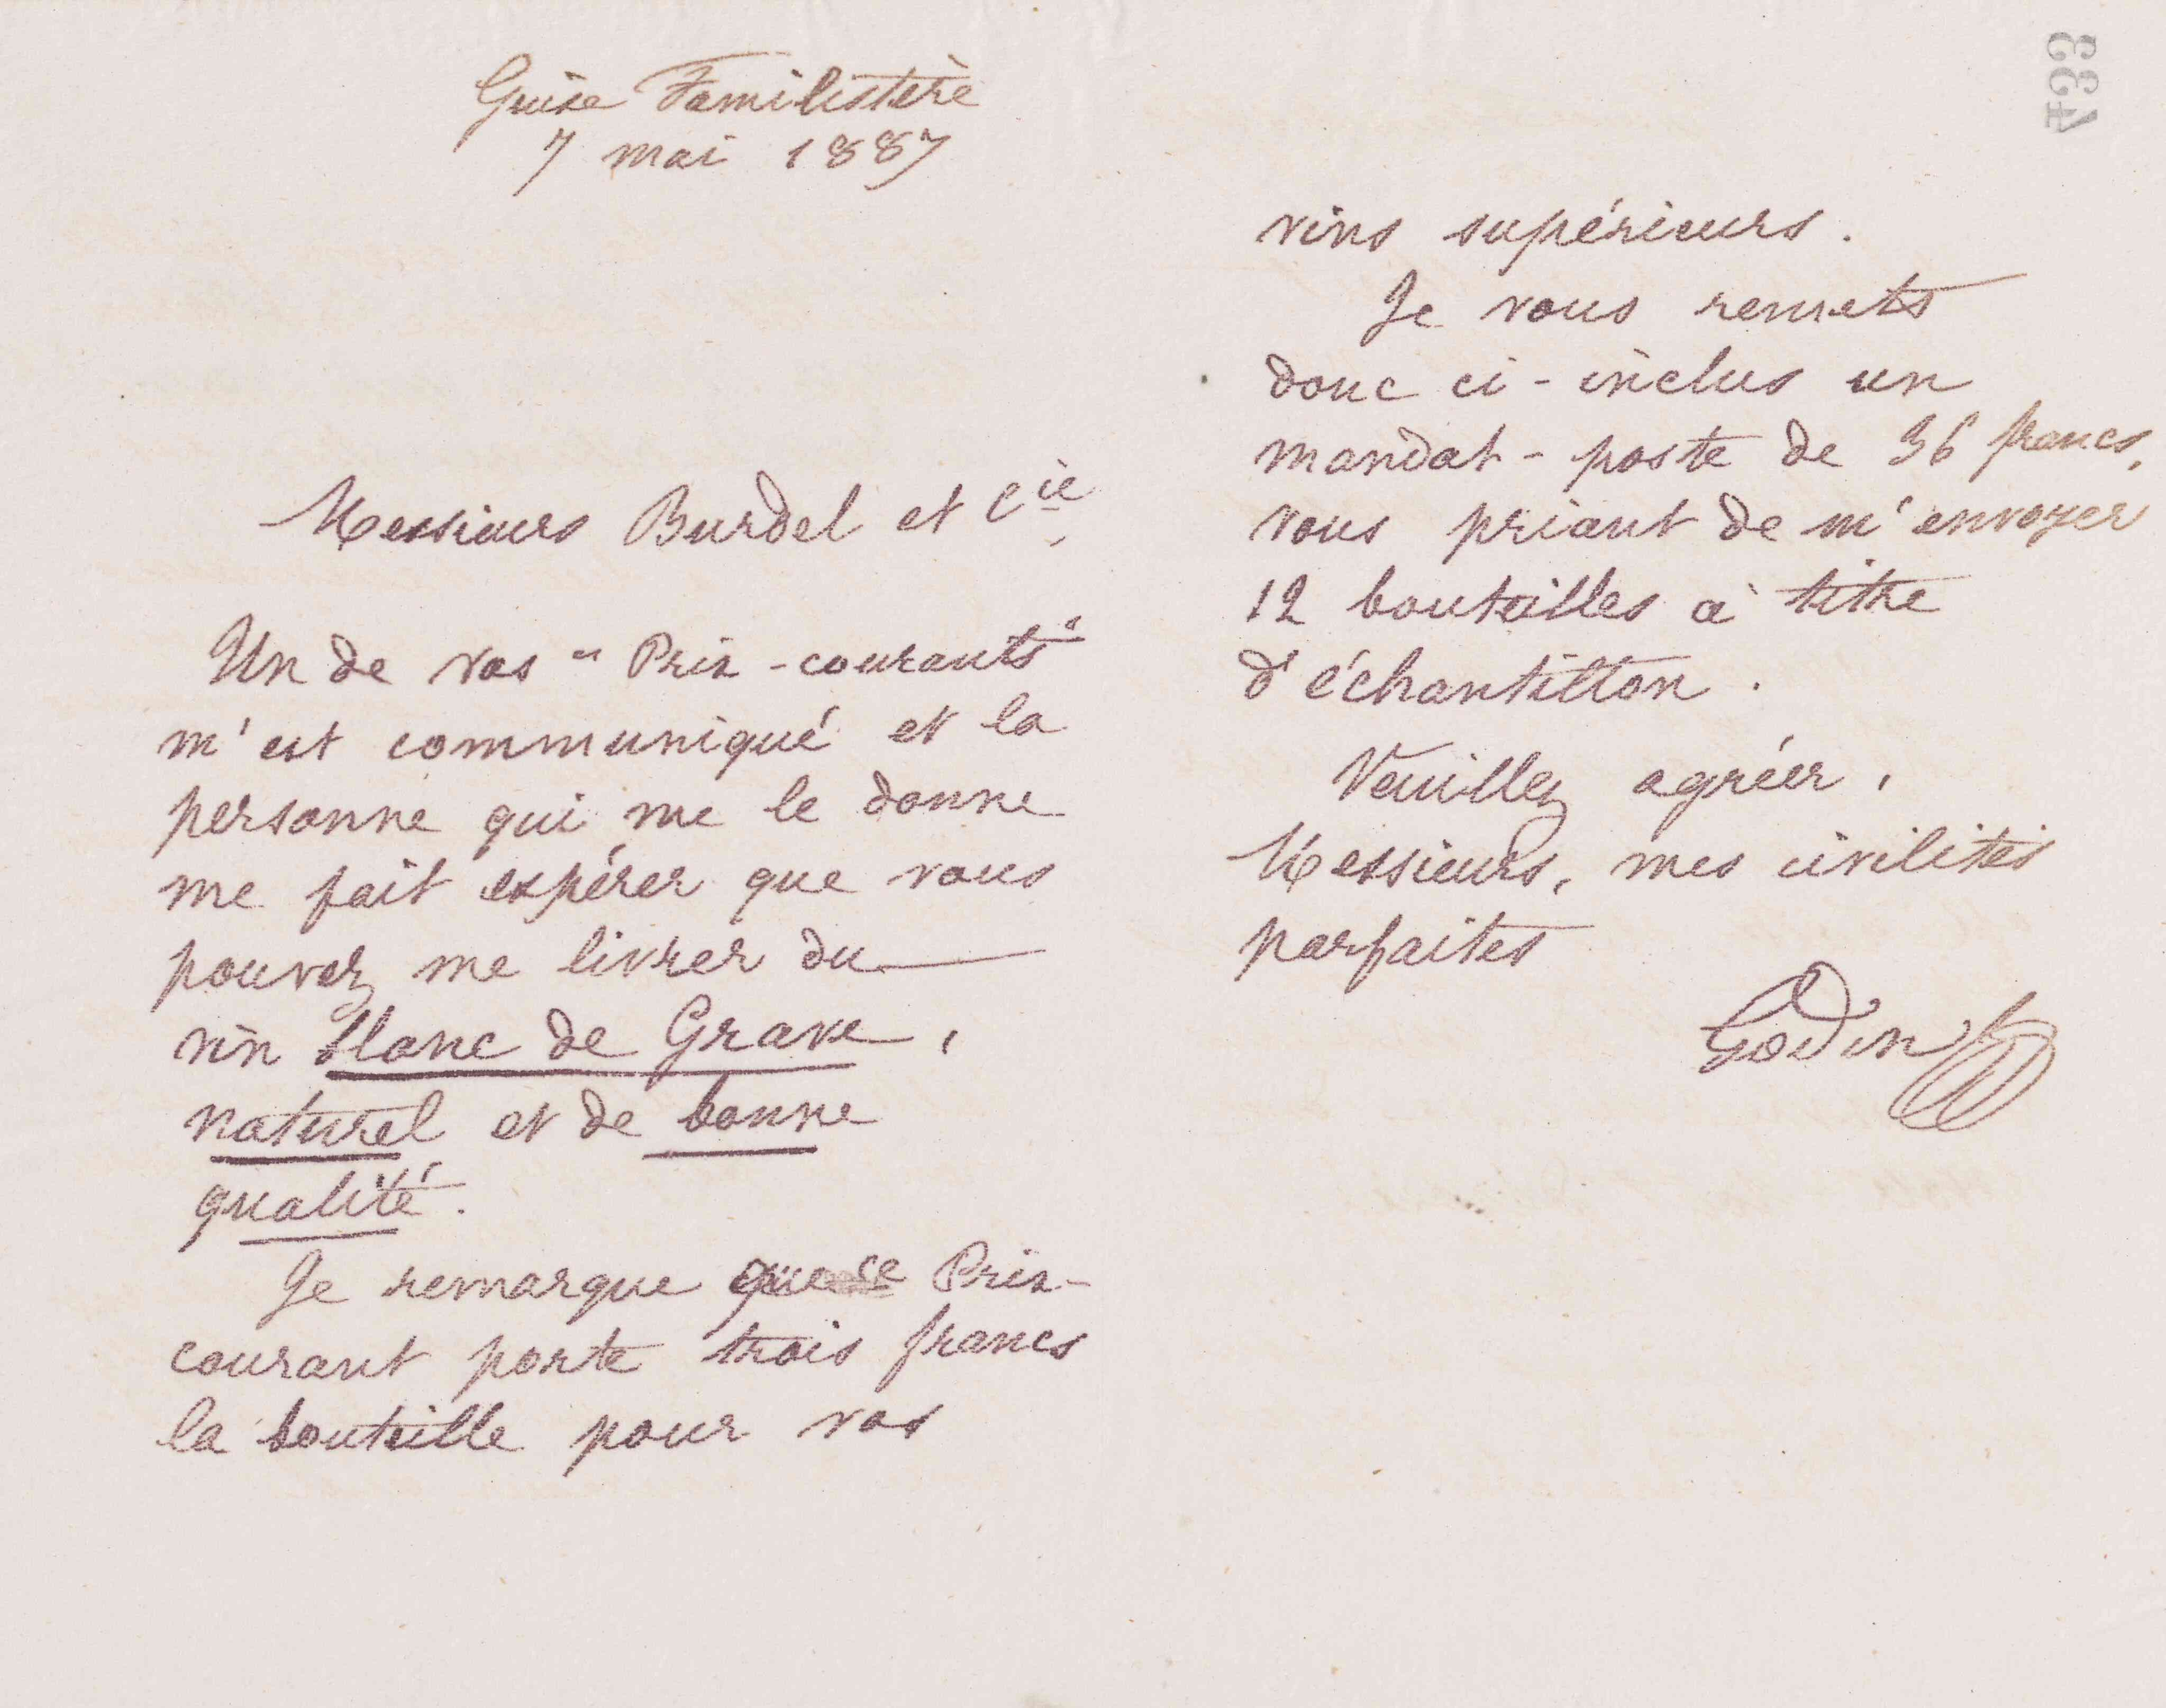 Guise Familistère
7 mai 1887
Messieurs Burdel et Cie,
Un de vos "Prix-courants"
m'est communiqué et la
personne qui me le donne
me fait espérer que vous
pouvez me livrer du
vin blanc de Grave,
naturel et de bonne
qualité.
Je remarque que ce Prix-
courant porte trois francs
la bouteille pour vos
433
vins supérieurs.
Je vous remets
donc ci-inclus un
mandat-poste de 36 francs,
vous priant de m'envoyer
12 bouteilles à titre
d'échantillon.
Veuillez agréer,
Messieurs, mes civilités
parfaites
Godin